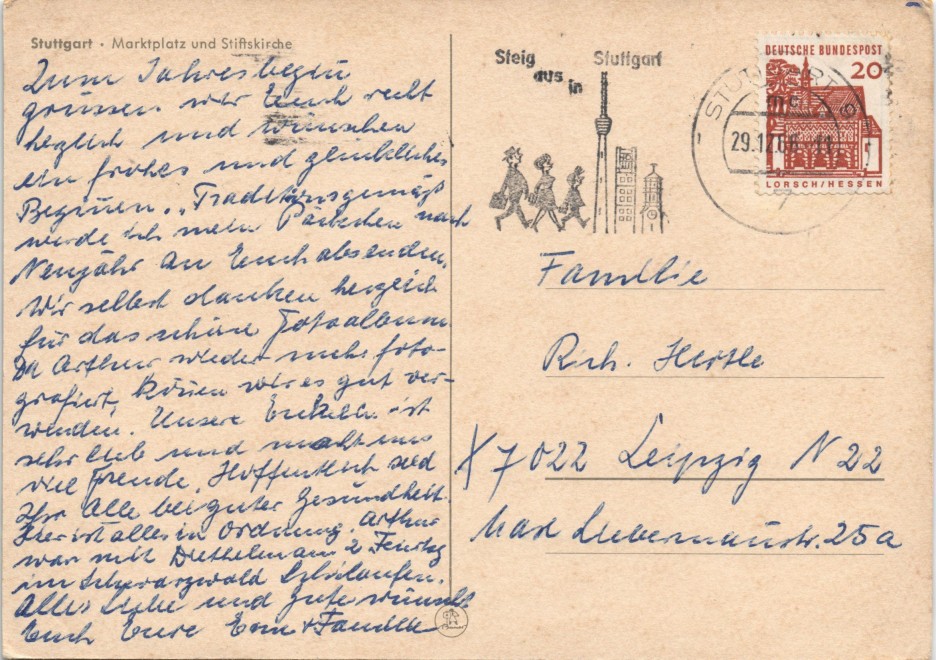 Stuttgart · Marktplatz und Stiftskirche
Zum Jahresbeginn
grüssen wir Euch recht
herzlich und wünschen
ein frohes und glückliches
Beginnen. „Traditionsgemäß
werde ich mein Päckchen nach
Neujahr an Euch absenden.
Wir selbst danken herzlich
für das schöne Fotoalbum.
Da Arthur wieder mehr foto-
grafiert, können wir es gut ver-
wenden. Unsere Enkelin ist
sehr lieb und macht uns
viel Freude. Hoffentlich seid
Ihr Alle bei guter Gesundheit.
Hier ist alles in Ordnung. Arthur
war mit Diethelm am 2. Feiertag
im Schwarzwald Schilaufen.
Alles Liebe und Gute wünscht
Euch Eure Erna + Familie
Steig aus in Stuttgart
STUTTGART 9
29.12.66
DEUTSCHE BUNDESPOST
20
LORSCH/HESSEN
Familie
Rich. Hertle
X7022 Leipzig N 22
Max Liebermannstr. 25a